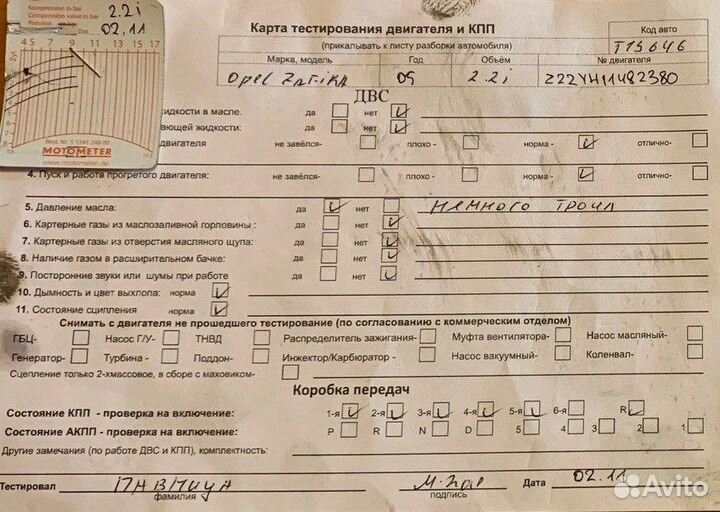 Kompression in bar
Compression value in bar
Pression
2.2i
02.11
4 5 7 9 11 13 15 17
Best. Nr. 5 1343 248 00
MOTOMETER
www.motometer.de
Карта тестирования двигателя и КПП
(прикалывать к листу разборки автомобиля)
Код авто
T15646
Марка, модель Год Объём № двигателя
Opel Zafira 05 2.2i Z22YH11482380
ДВС
жидкости в масле. да нет
ающей жидкости: да нет
двигателя не завёлся- плохо - норма - отлично-
4. Пуск и работа прогретого двигателя: не завёлся- плохо - норма - отлично-
5. Давление масла: да нет немного троил
6. Картерные газы из маслозаливной горловины : да нет
7. Картерные газы из отверстия масляного щупа: да нет
8. Наличие газов в расширительном бачке: да нет
9. Посторонние звуки или шумы при работе да нет
10. Дымность и цвет выхлопа: норма
11. Состояние сцепления норма
Снимать с двигателя не прошедшего тестирование (по согласованию с коммерческим отделом)
ГБЦ- Насос Г/У- ТНВД Распределитель зажигания- Муфта вентилятора- Насос масляный-
Генератор- Турбина - Поддон- Инжектор/Карбюратор - Насос вакуумный- Коленвал-
Сцепление только 2-хмассовое, в сборе с маховиком-
Коробка передач
Состояние КПП - проверка на включение: 1-я 2-я 3-я 4-я 5-я 6-я R
Состояние АКПП - проверка на включение: P R N D 5 4 3 2 1
Другие замечания (по работе ДВС и КПП), комплектность:
Тестировал Дата 02.11
фамилия подпись
Avito